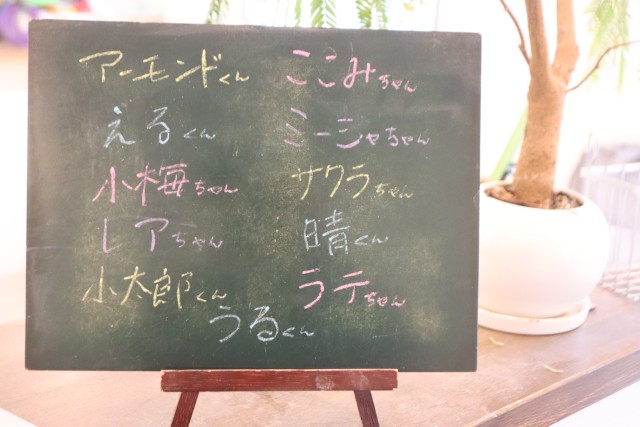 アーモンドくん ここみちゃん
えるくん ミーシャちゃん
小梅ちゃん サクラちゃん
レアちゃん 晴くん
小太郎くん ラテちゃん
うるくん